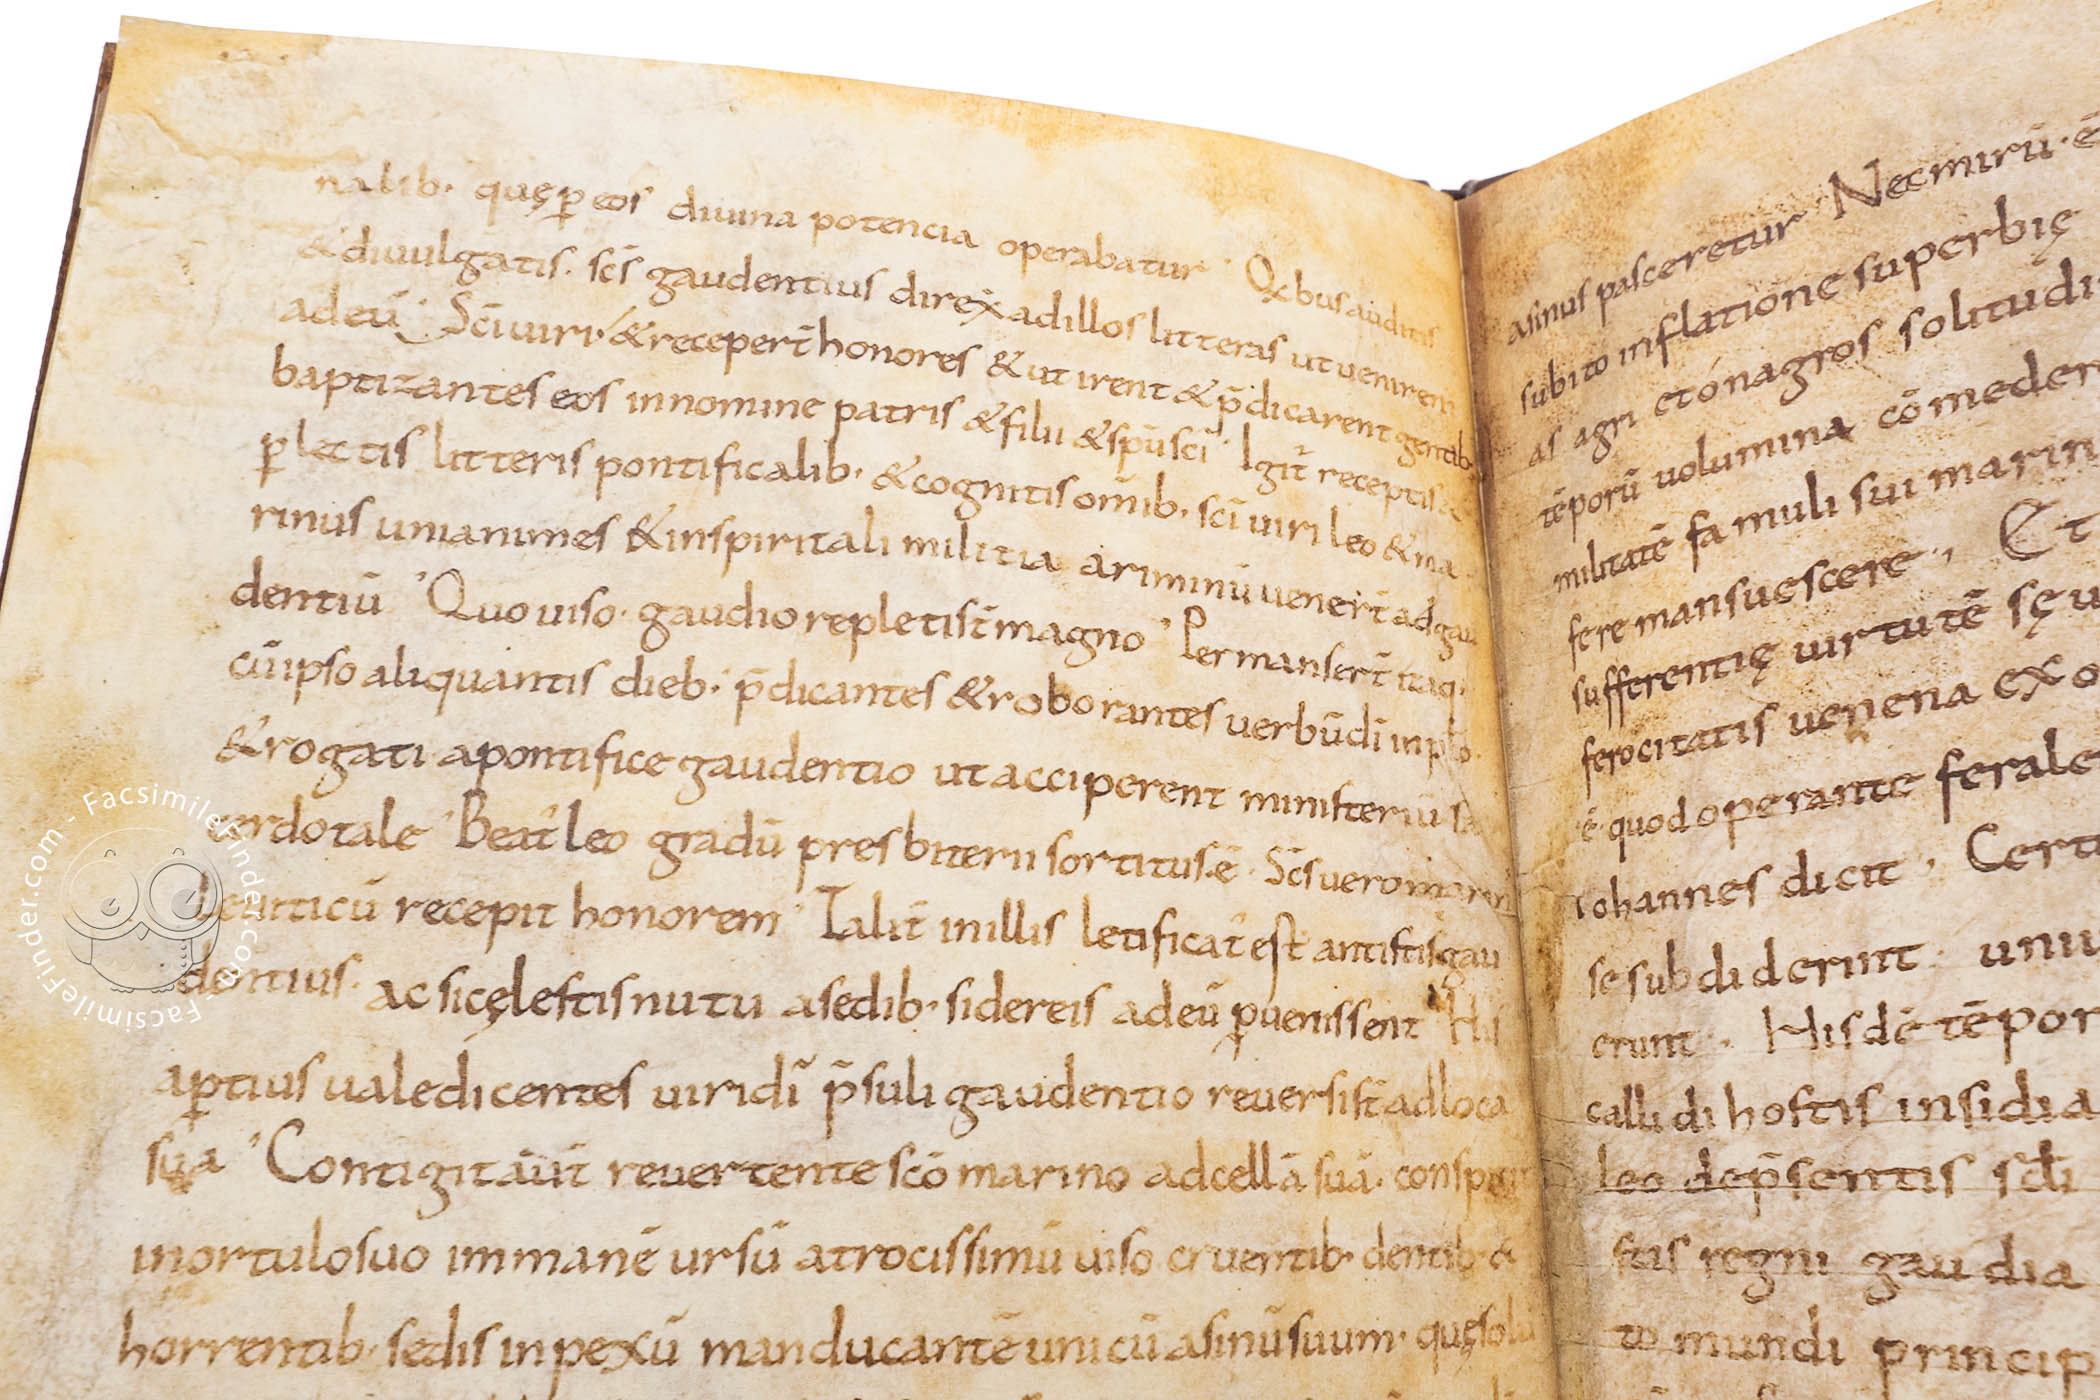 nalib· quę ꝑ eos diuina potencia operabatur Qͥbus auditis
& diuulgatis· sc̄s gaudentius direx̄ ad illos litteras ut uenirent
ad eū Sc̄i uiri· & receper̄t honores & ut irent & p̄dicarent gentib·
baptizantes eos in nomine patris & filii & sp̄u sc̄i Igit̄ receptis
ꝑlectis litteris pontificalib· & cognitis om̄ib· sc̄i uiri leo & ma
rinus unianimes & in spiritali militia ariminū uener̄t ad gau
dentiū Quo uiso· gaudio repleti st̄ magno Permanser̄t itaq·
cū ipso aliquantis dieb· p̄dicantes & roborantes uerbū dī in pplo
& rogati a pontifice gaudentio ut acciperent ministeriū sa
cerdotale Beat̄ leo gradū presbiterii sortitus ē· Sc̄s uero marin
leuiticū recepit honorem Talit̄ in illis letificat̄ est antistis gau
dentius· ac si cęlestis nutu a sedib· sidereis ad eū ꝑuenissent His
aꝑtius ualedicentes uiri dī p̄suli gaudentio reuersi st̄ ad loca
sua Contigit aut̄ reuertente sc̄o marino ad cellā suā· conspexit
in ortulo suo immanē ursū atrocissimū uiso cruentib· dentib· &
horrentib· sedis inpexū manducantē unicū asinū suum· quę solū
asinus pasceretur Nec mirū· ē
subito inflatione superbię
as agri et ónagros solitudi
tēporū uolumina cōmeder
militatē famuli sui marin
fere mansuescere, Et
sufferentię uirtutē sęu
ferocitatis uenena exo
ē quod operante ferale
Iohannes dicit· Certi
se subdiderint· unu
erunt· His dē tēpor
callidi hostis insidia
leo dep̄sentis scłi
stis regni gaudia
to mundi princip